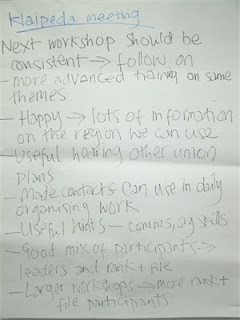 Klaipeda meeting
Next workshop should be
consistent → follow on
– more advanced training on same
themes
– Happy → lots of information
on the region we can use
Useful hearing other union
plans
– Made contacts can use in daily
organising work
– Useful hints – comms, skills
– Good mix of participants →
leaders and rank + file
– Larger workshops → more rank +
file participants